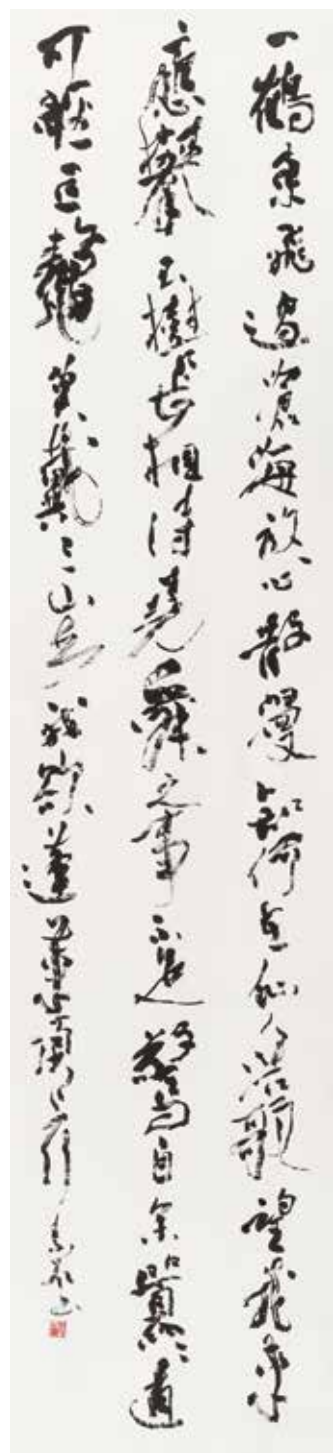 一鶴東飛過滄海放心散漫知何在仙人浩歌望我來
應攀玉樹長相待堯舜之事不足驚自餘囂囂直
可輕巨鼇莫戴三山去我欲蓬萊頂上行